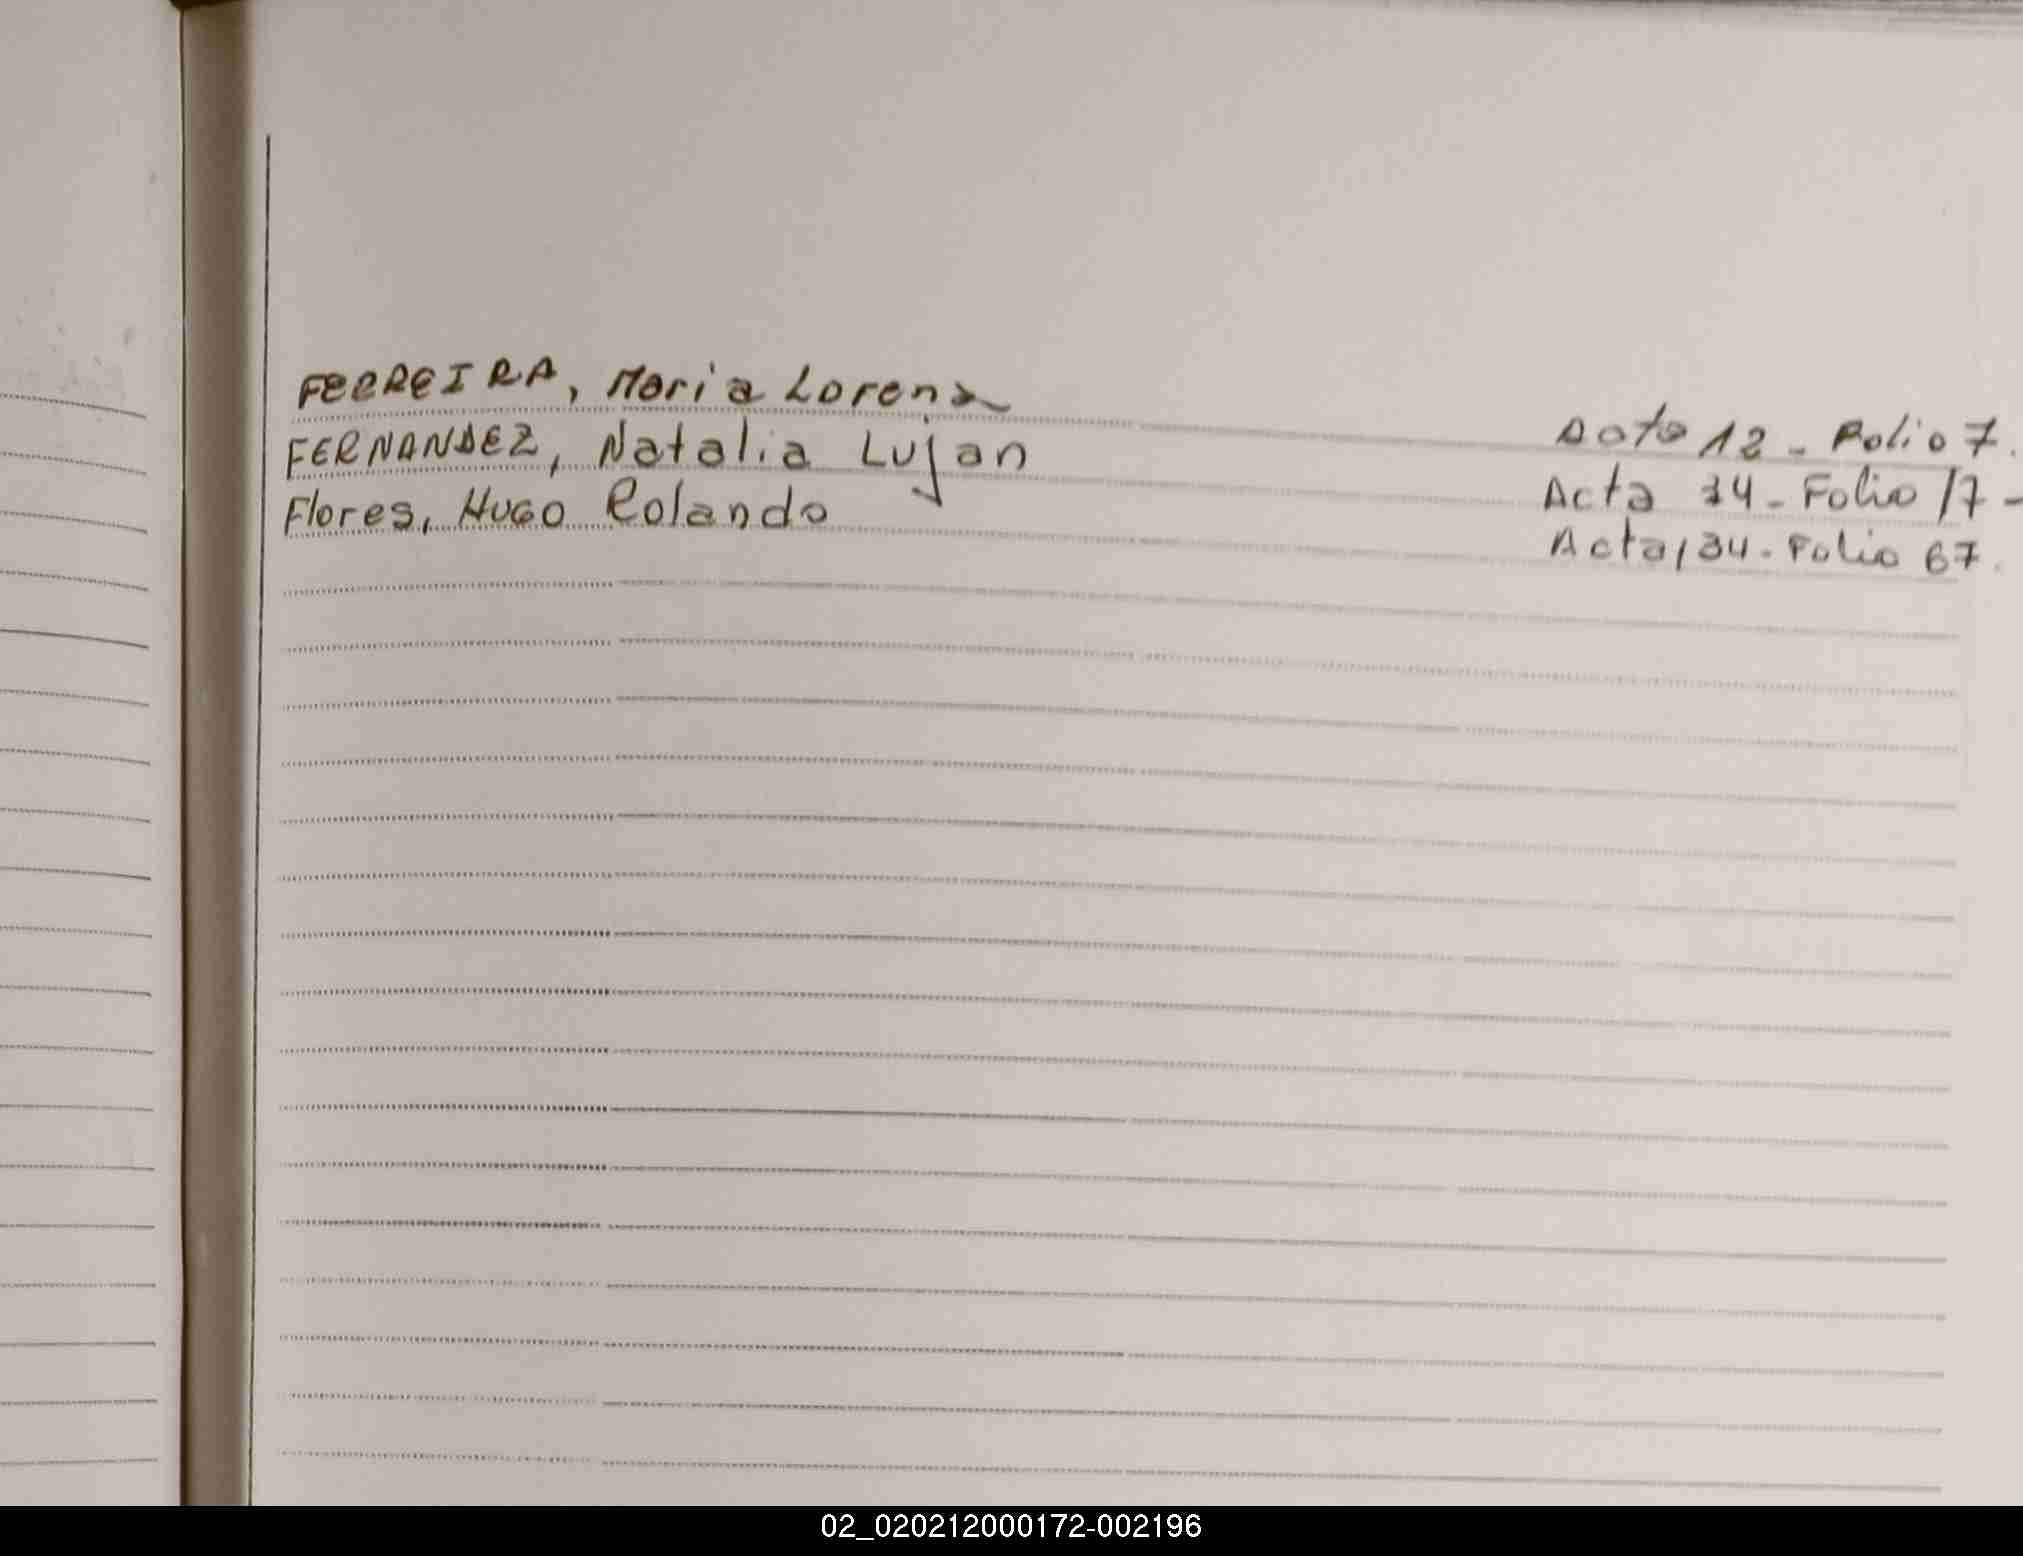 FERREIRA, Maria Lorena Acta 12 - Folio 7.
FERNANDEZ, Natalia Lujan Acta 34 - Folio 17 -
Flores, Hugo Rolando Acta 134 - Folio 67.
02_020212000172-002196